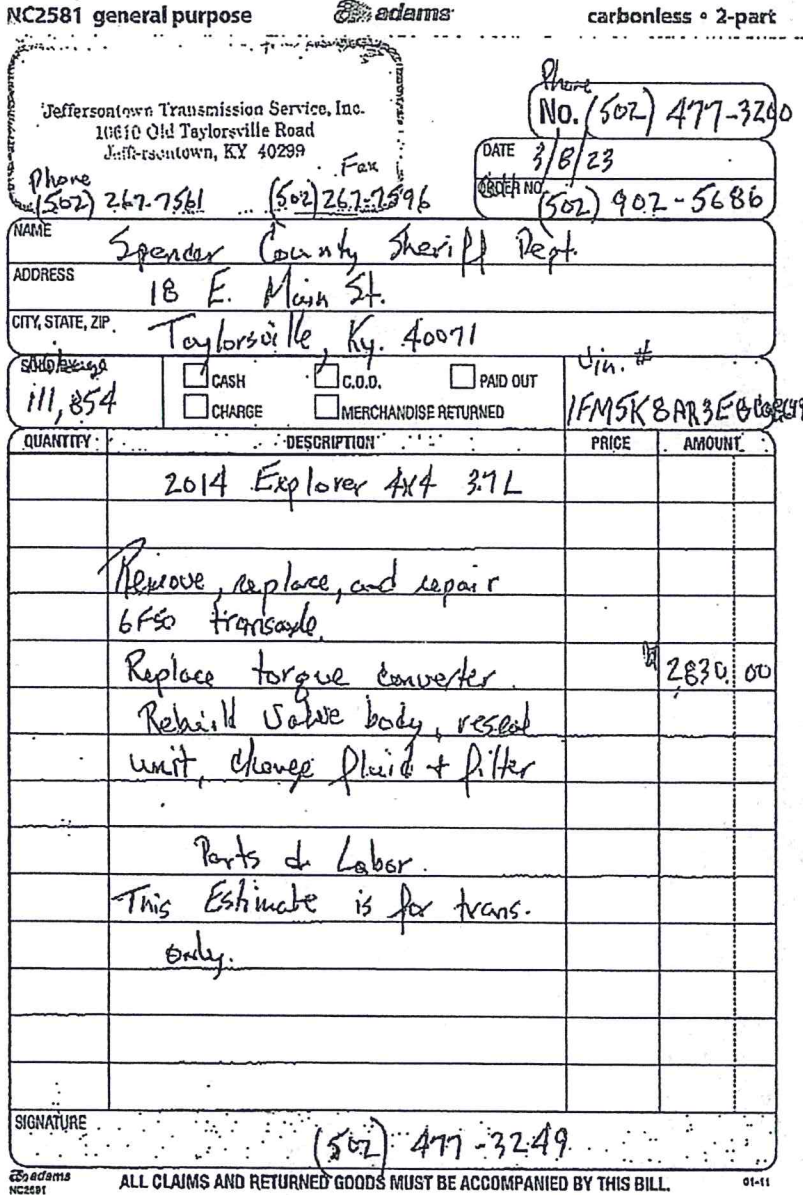 NC2581 general purpose
adams
carbonless • 2-part
Jeffersontown Transmission Service, Inc.
10610 Old Taylorsville Road
Jeffersontown, KY 40299
Phone
(502) 267-7561
Fax
(502) 267-7596
Phone
No. (502) 477-3200
DATE 3/8/23
ORDER NO. (502) 902-5686
NAME Spencer County Sheriff Dept.
ADDRESS 18 E. Main St.
CITY, STATE, ZIP Taylorsville, Ky. 40071
111,854
CASH
C.O.D.
PAID OUT
CHARGE
MERCHANDISE RETURNED
Vin. #
1FM5K8AR3EG
QUANTITY
DESCRIPTION
PRICE
AMOUNT
2014 Explorer 4x4 3.7L
Remove, replace, and repair
6F50 transaxle.
Replace torque converter. 2,830.00
Rebuild Valve body, reseal
unit, change fluid + filter
Parts & Labor.
This Estimate is for trans.
only.
SIGNATURE
(502) 477-3249
adams
NC2581
ALL CLAIMS AND RETURNED GOODS MUST BE ACCOMPANIED BY THIS BILL.
01-11